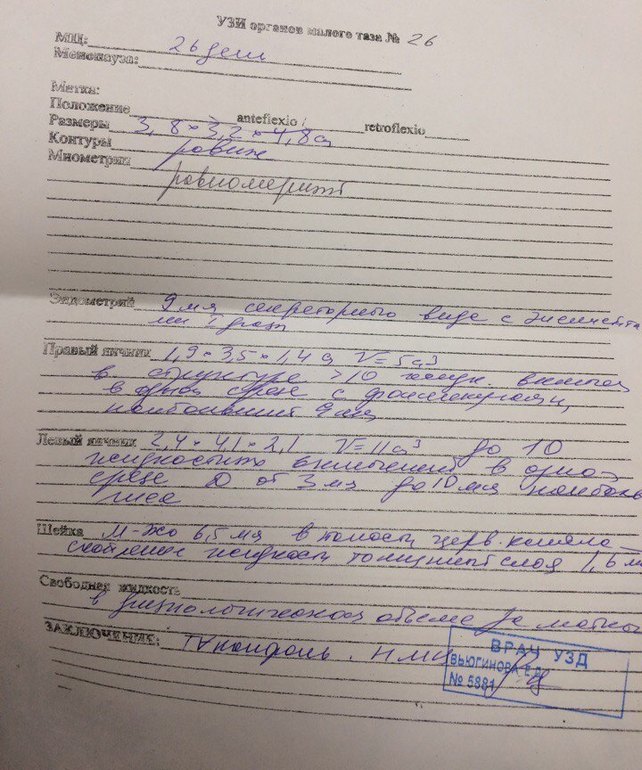 УЗИ органов малого таза № 26
МЦ: 26 день
Менопауза:
Матка:
Положение anteflexio, retroflexio
Размеры 3,8×3,2×4,8 см
Контуры ровные
Миометрий
равномерный
Эндометрий 9 мм секреторного вида с
Правый яичник 1,9×3,5×1,4 см V=5 см³
в структуре >10
в одном срезе с
наибольший 9 мм
Левый яичник 2,4×4,1×2,1 V=11 см³ до 10
жидкостных включений в одном
срезе D от 3 мм до 10 мм
Шейка 6,5 мм в полость церв. канала
жидкость толщиной слоя 1,6
Свободная жидкость
в физиологическом объеме за маткой
ЗАКЛЮЧЕНИЕ: НМЦ
ВРАЧ УЗД
ВЬЮГИНОВА Е.
№ 5881